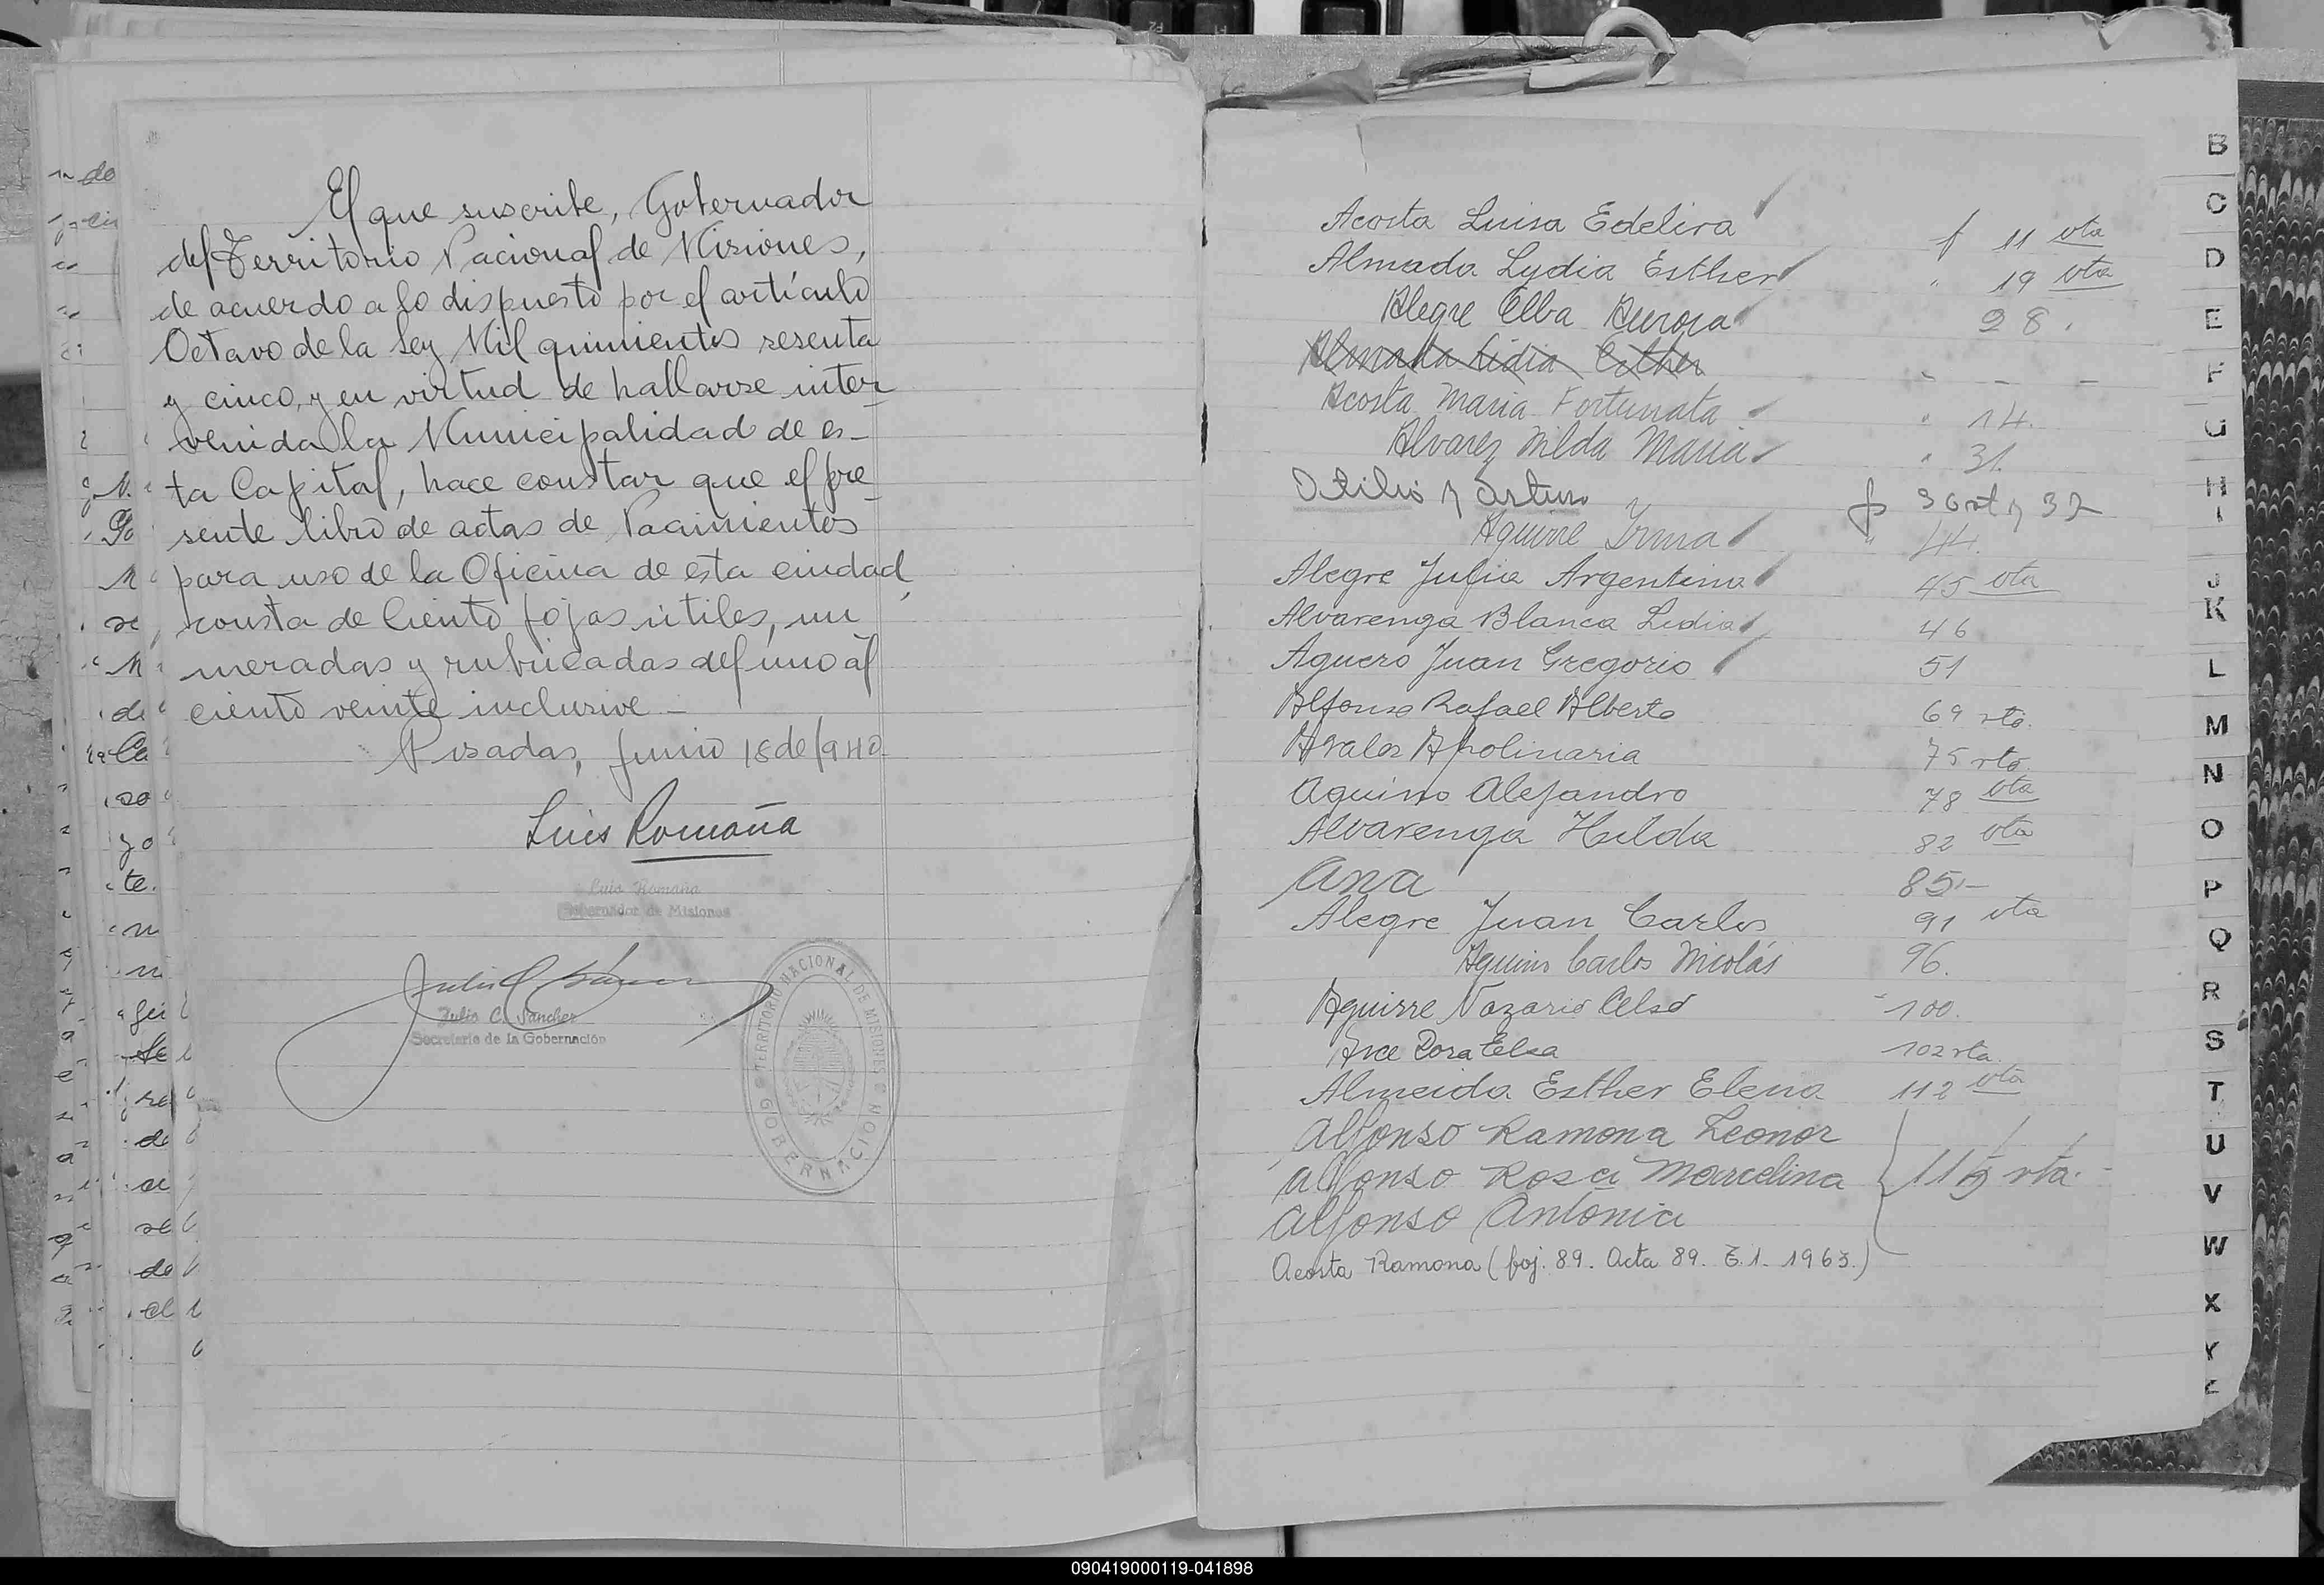 El que suscribe, Gobernador
del Territorio Nacional de Misiones,
de acuerdo a lo dispuesto por el artículo
Octavo de la Ley Mil quinientos sesenta
y cinco, y en virtud de hallarse inter
venida la Municipalidad de es-
ta Capital, hace constar que el pre
sente libro de actas de Nacimientos
para uso de la Oficina de esta ciudad,
consta de Ciento fojas útiles, nu
meradas y rubricadas del uno al
ciento veinte inclusive -
Posadas, Junio 18 de 1940.
Luis Romaña
Luis Romaña
Gobernador de Misiones
Julio C. Sánchez
Secretario de la Gobernación
GOBERNACION TERRITORIO NACIONAL DE MISIONES
Acosta Luisa Edelira f 11 vta
Almada Lydia Esther " 19 vta
Alegre Elba Aurora 28.
Almada Lidia Esther " - -
Acosta Maria Fortunata " 14.
Alvarez Nilda Maria " 31.
Otilio y Arturo f 36 vt y 37
Aguirre Irma " 44.
Alegre Julia Argentina 45 vta
Alvarenga Blanca Lidia 46
Aguero Juan Gregorio 51
Alfonso Rafael Alberto 69 vta.
Avalos Apolinaria 75 vta
Aquino Alejandro 78 vta
Alvarenga Hilda 82 vta
Ana 85.-
Alegre Juan Carlos 91 vta
Aquino Carlos Nicolás 96.
Aguirre Nazario Celso 100.
Arce Dora Elsa 102 vta.
Almeida Esther Elena 112 vta
Alfonso Ramona Leonor
Alfonso Rosa Marcelina vta.
Alfonso Antonia
Acosta Ramona (foj. 89. Acta 89. T.1. 1963.)
B
C
D
E
F
G
H
I
J
K
L
M
N
O
P
Q
R
S
T
U
V
W
X
Y
Z
090419000119-041898